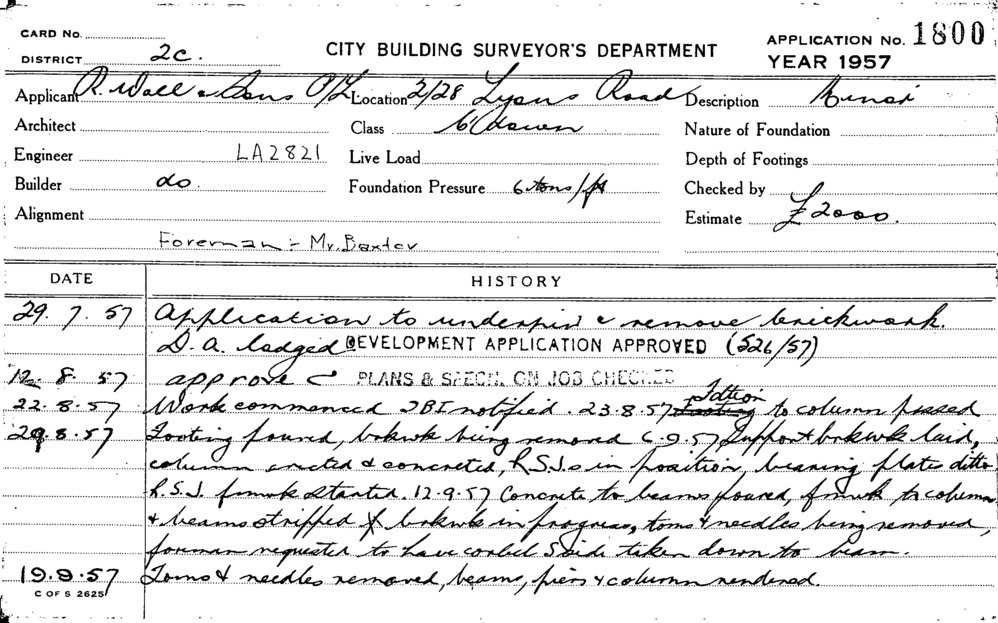 CARD No.
DISTRICT 2c.
CITY BUILDING SURVEYOR'S DEPARTMENT
APPLICATION No. 1800
YEAR 1957
Applicant R. Wall & Sons P/L Location 2/28 Lyons Road Description Minor
Architect Class Nature of Foundation
Engineer LA2821 Live Load Depth of Footings
Builder do. Foundation Pressure 6 tons/ft Checked by
Alignment Estimate £2000.
Foreman :- Mr. Baxter
DATE HISTORY
29. 7. 57 Application to underpin & remove brickwork.
D. A. lodged DEVELOPMENT APPLICATION APPROVED (526/57)
12 8. 57 approve C PLANS & SPECN. ON JOB CHECKED
22.8.57 Work commenced IBI notified. 23.8.57 to column passed
29.8.57 Footing poured, bwkwk being removed 6.9.57 Support bwkwk laid,
column erected & concreted, R.S.Js in position, bearing plates ditto
R.S.J. fmwk started. 12.9.57 Concrete to beams poured, fmwk to column
& beams stripped & bwkwk in progress, toms & needles being removed,
forman requested to have corbel S side taken down to beam.
19.9.57 Toms & needles removed, beams, piers & column rendered.
C OF S 2625